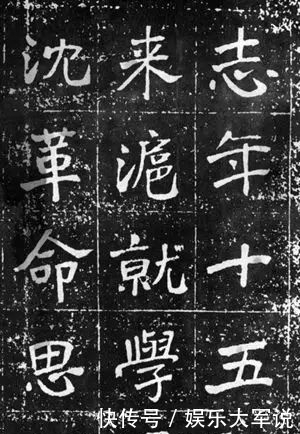 志年十五
来滬就學
沈革命思
快传号／娱乐大军说